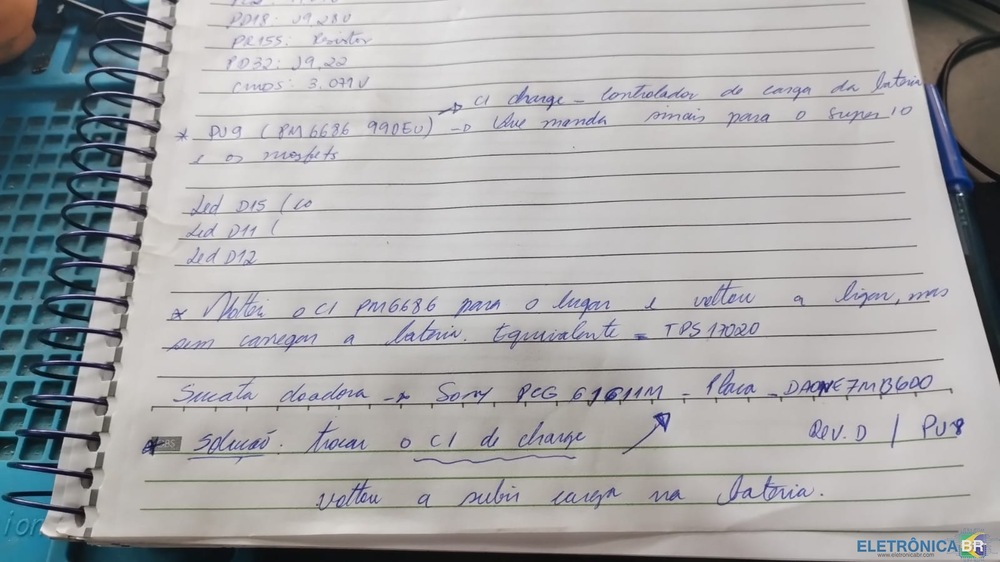 PD18: 19,28V
PR155: Resistor
PD32: 19,22
CMOS: 3.071V
→ CI charge - Controlador de carga da bateria
* PU9 (PM6686 99DEU) → Que manda sinais para o super IO
e os mosfets
Led D15 (co
Led D11 (
Led D12
* Voltei o CI PM6686 para o lugar e voltou a ligar, mas
sem carregar a bateria. Equivalente = TPS17020
Sucata doadora → Sony PCG 61611M - Placa - DA0NE7MB6D0
* Solução: trocar o CI de charge Rev.D / PU8
voltou a subir carga na bateria.
ELETRÔNICA BR
www.eletronicabr.com